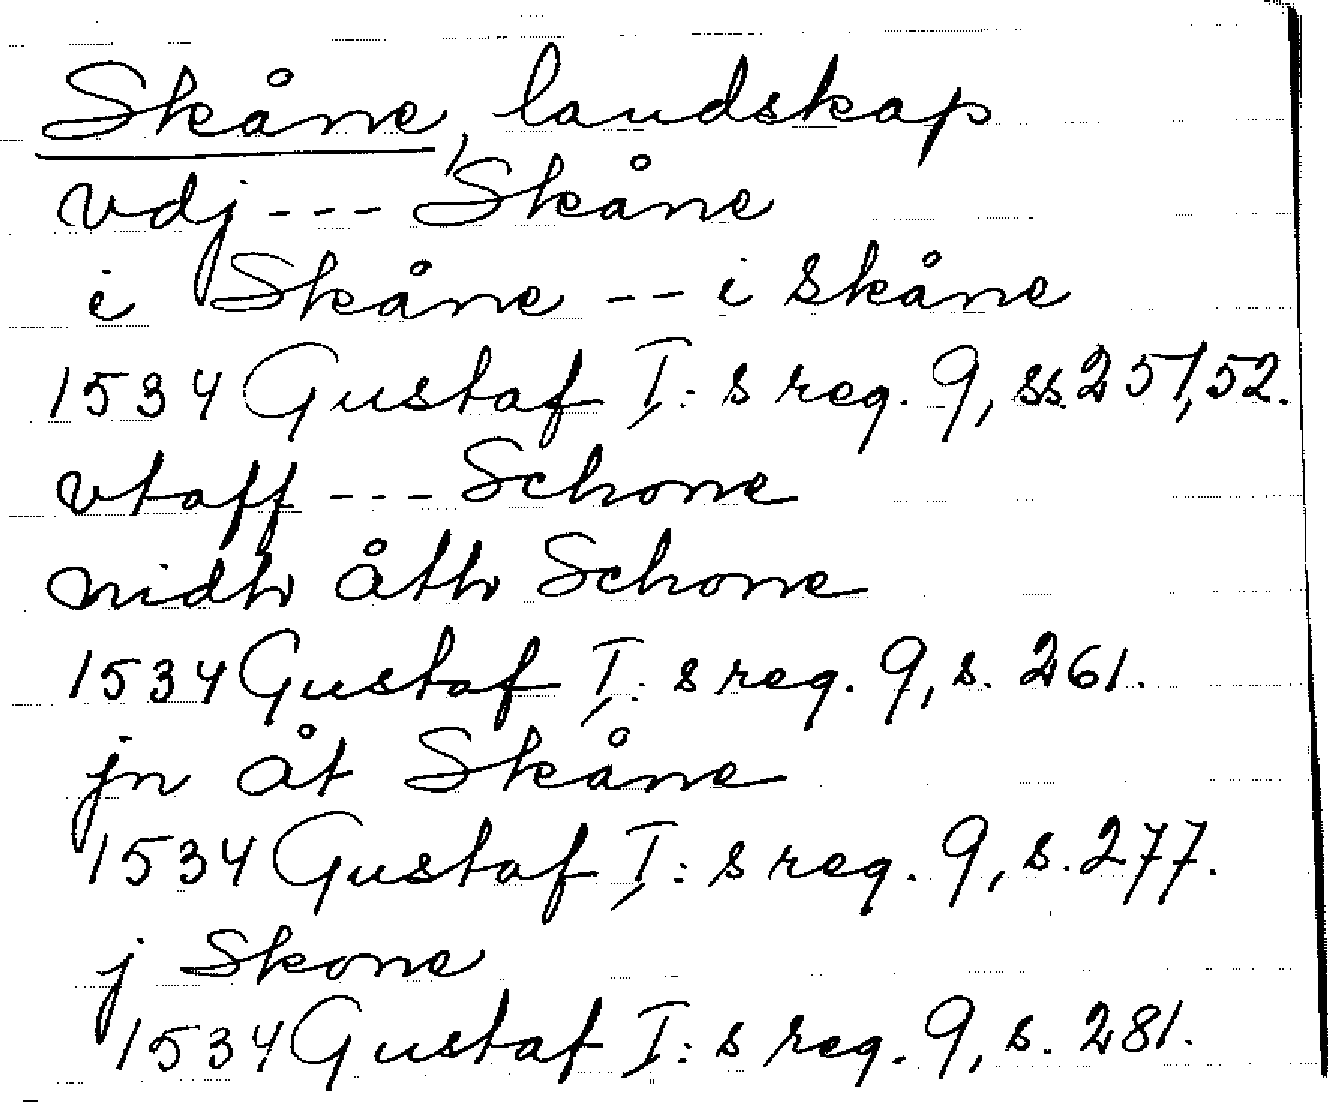 Skåne, landskap
vdj --- Skåne
i Skåne -- i skåne
1534 Gustaf I:s reg. 9, ss. 251, 52.
vtaff --- Schone
nidh åth Schone
1534 Gustaf I:s reg. 9, s. 261.
jn åt Skåne
1534 Gustaf I:s reg. 9, s. 277.
j Skone
1534 Gustaf I:s reg. 9, s. 281.